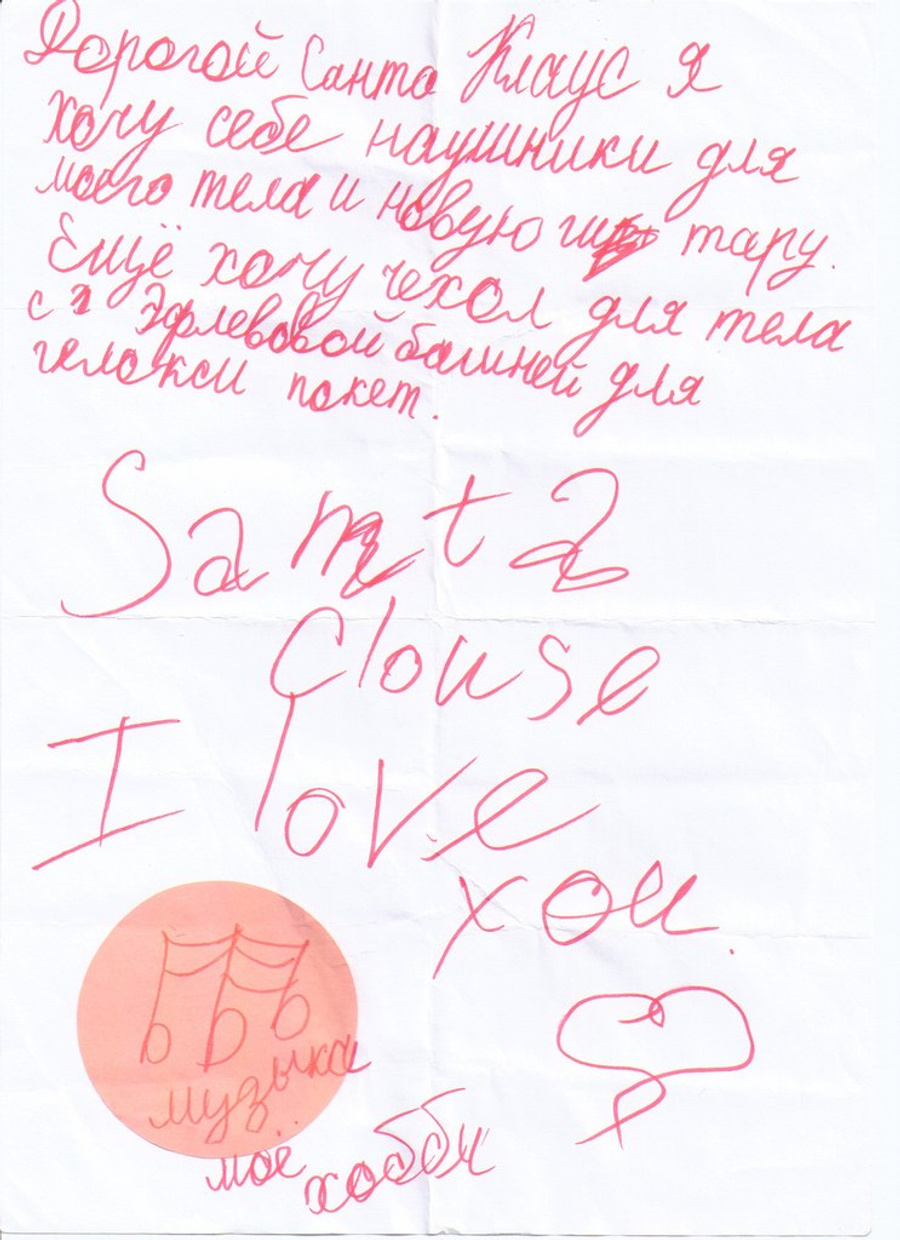 Дорогой Санта Клаус я
хочу себе наушники для
моего тела и новую ги тару.
Ещё хочу чехол для тела
с Эфлевовой башней для
гелокси покет.
Santa
Clouse
I love
you.
музыка
моё хобби